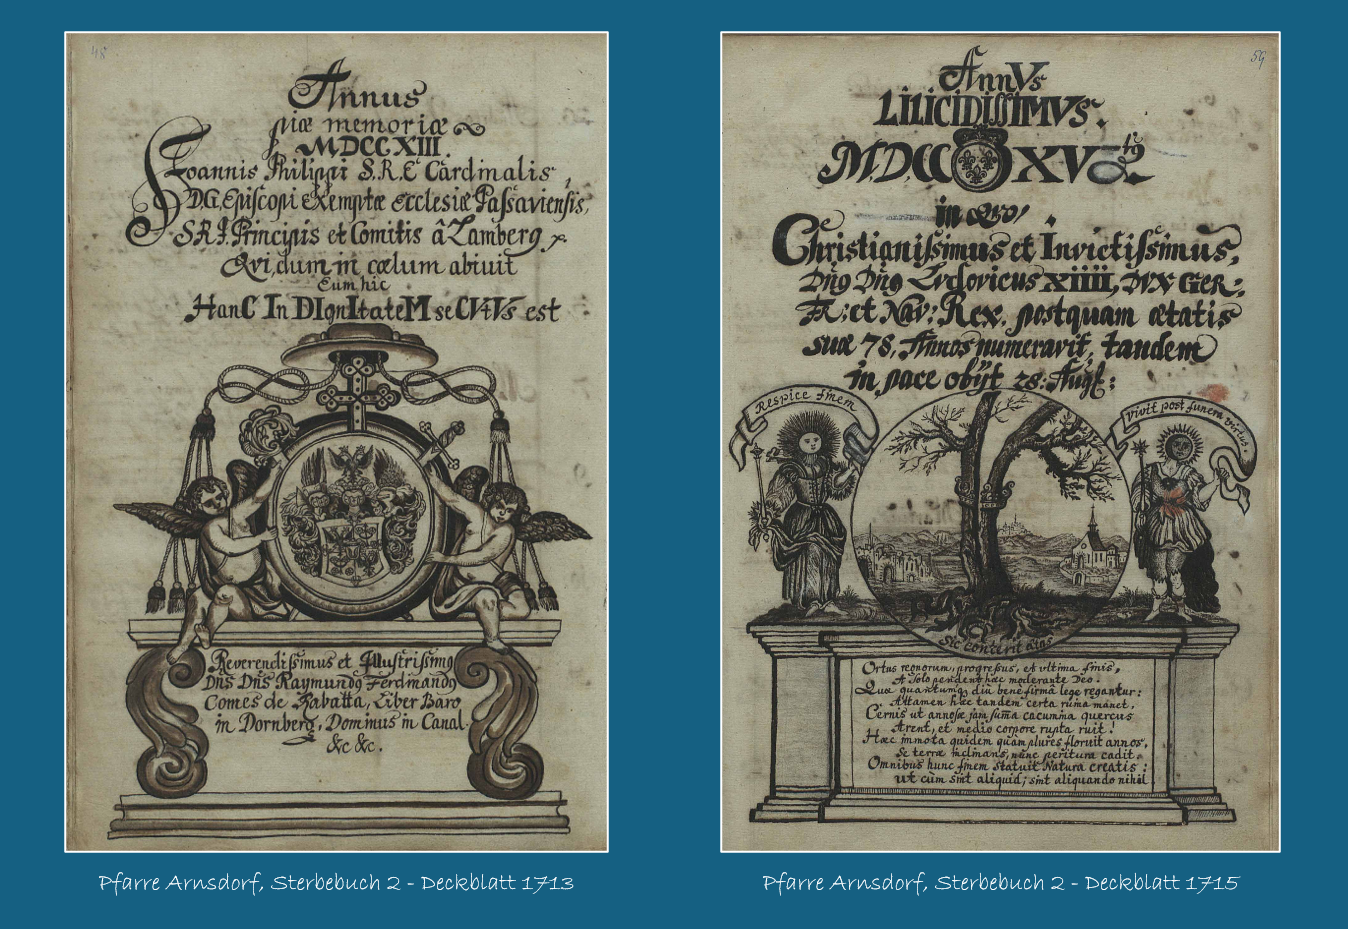 48
Annus
piæ memoriæ
MDCCXIII.
Joannis Philippi S.R.E Cardinalis,
D.G. Episcopi Exemptæ Ecclesiæ Passaviensis,
S.R.I. Principis et Comitis â Lamberg.
Qvi, dum in cœlum abiuit
Eum hic
HanC In DIgnItateM seCVtVs est
Reverendissimus et Illustrissimq
Dns Dns Raymundq Ferdinandq
Comes de Rabatta, Liber Baro
in Dornberg, Dominus in Canal.
&c &c.
Pfarre Arnsdorf, Sterbebuch 2 - Deckblatt 1713
59
AnnVs
LILICIDISSIMVS.
M.D.CC XV
in qvo
Christianissimus et Invictissimus,
Dnq Dnq Lvdovicus XIIII, DVX GER:
FR: et Nav: Rex, postquam ætatis
suæ 78, Annos numeravit, tandem
in pace obijt 28: Aug:
Respice finem
vivit post funera virtus.
Sic conterit ætas
Ortus regnorum, progressus, et vltima finis,
A Solo pendent hæc moderante Deo.
Quæ quantumq diu bene firma lege regantur:
Attamen hæc tandem certa ruina manet,
Cernis ut annosæ jam summa cacumina quercus
Arent, et medio corpore rupta ruit.
Hæc immota quidem quam plures floruit annos,
Se terræ inclinans, nunc peritura cadit.
Omnibus hunc finem statuit Natura creatis:
ut cùm sint aliquid; sint aliquando nihil
Pfarre Arnsdorf, Sterbebuch 2 - Deckblatt 1715